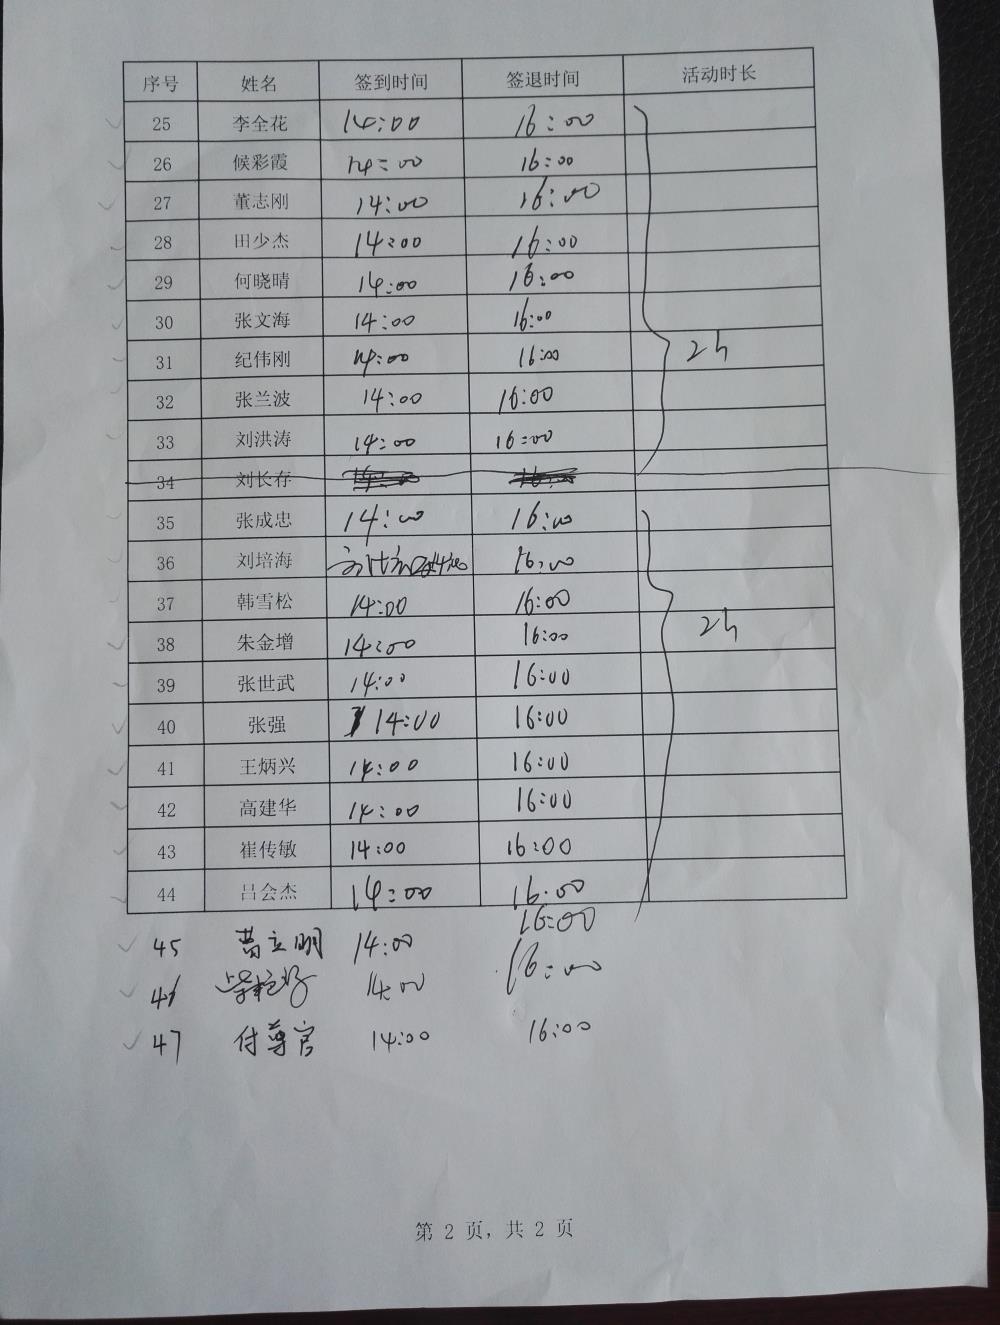 序号 姓名 签到时间 签退时间 活动时长
25 李全花 14:00 16:00
26 候彩霞 14:00 16:00
27 董志刚 14:00 16:00
28 田少杰 14:00 16:00
29 何晓晴 14:00 16:00
30 张文海 14:00 16:00
31 纪伟刚 14:00 16:00 2h
32 张兰波 14:00 16:00
33 刘洪涛 14:00 16:00
34 刘长存
35 张成忠 14:00 16:00
36 刘培海 16:00
37 韩雪松 14:00 16:00
38 朱金增 14:00 16:00 2h
39 张世武 14:00 16:00
40 张强 14:00 16:00
41 王炳兴 14:00 16:00
42 高建华 14:00 16:00
43 崔传敏 14:00 16:00
44 吕会杰 14:00 16:00
45 立明 14:00 16:00
46 14:00 16:00
47 付尊官 14:00 16:00
第 2 页, 共 2 页